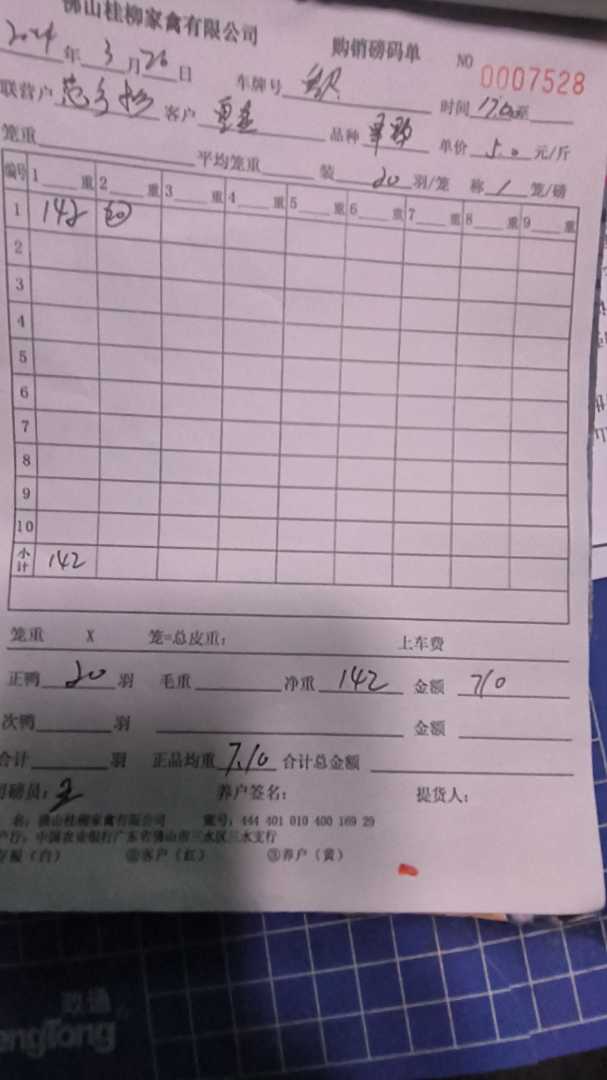 佛山桂柳家禽有限公司
购销磅码单 NO 0007528
2024年3月26日 车牌号 时间 至
联营户 客户 品种 单价 5.0 元/斤
笼重 平均笼重 装 20 羽/笼 称 1 笼/磅
编号 1 重 2 重 3 重 4 重 5 重 6 重 7 重 8 重 9 重
1 142 20
2
3
4
5
6
7
8
9
10
小计 142
笼重 X 笼=总皮重: 上车费
正鸭 20 羽 毛重 净重 142 金额 710
次鸭 羽 金额
合计 羽 正品均重 7.10 合计总金额
司磅员: 养户签名: 提货人:
名: 佛山桂柳家禽有限公司 账号: 444 401 010 400 169 29
户行: 中国农业银行广东省佛山市三水区三水支行
存根（白） ②客户（红） ③养户（黄）
政通
engTong